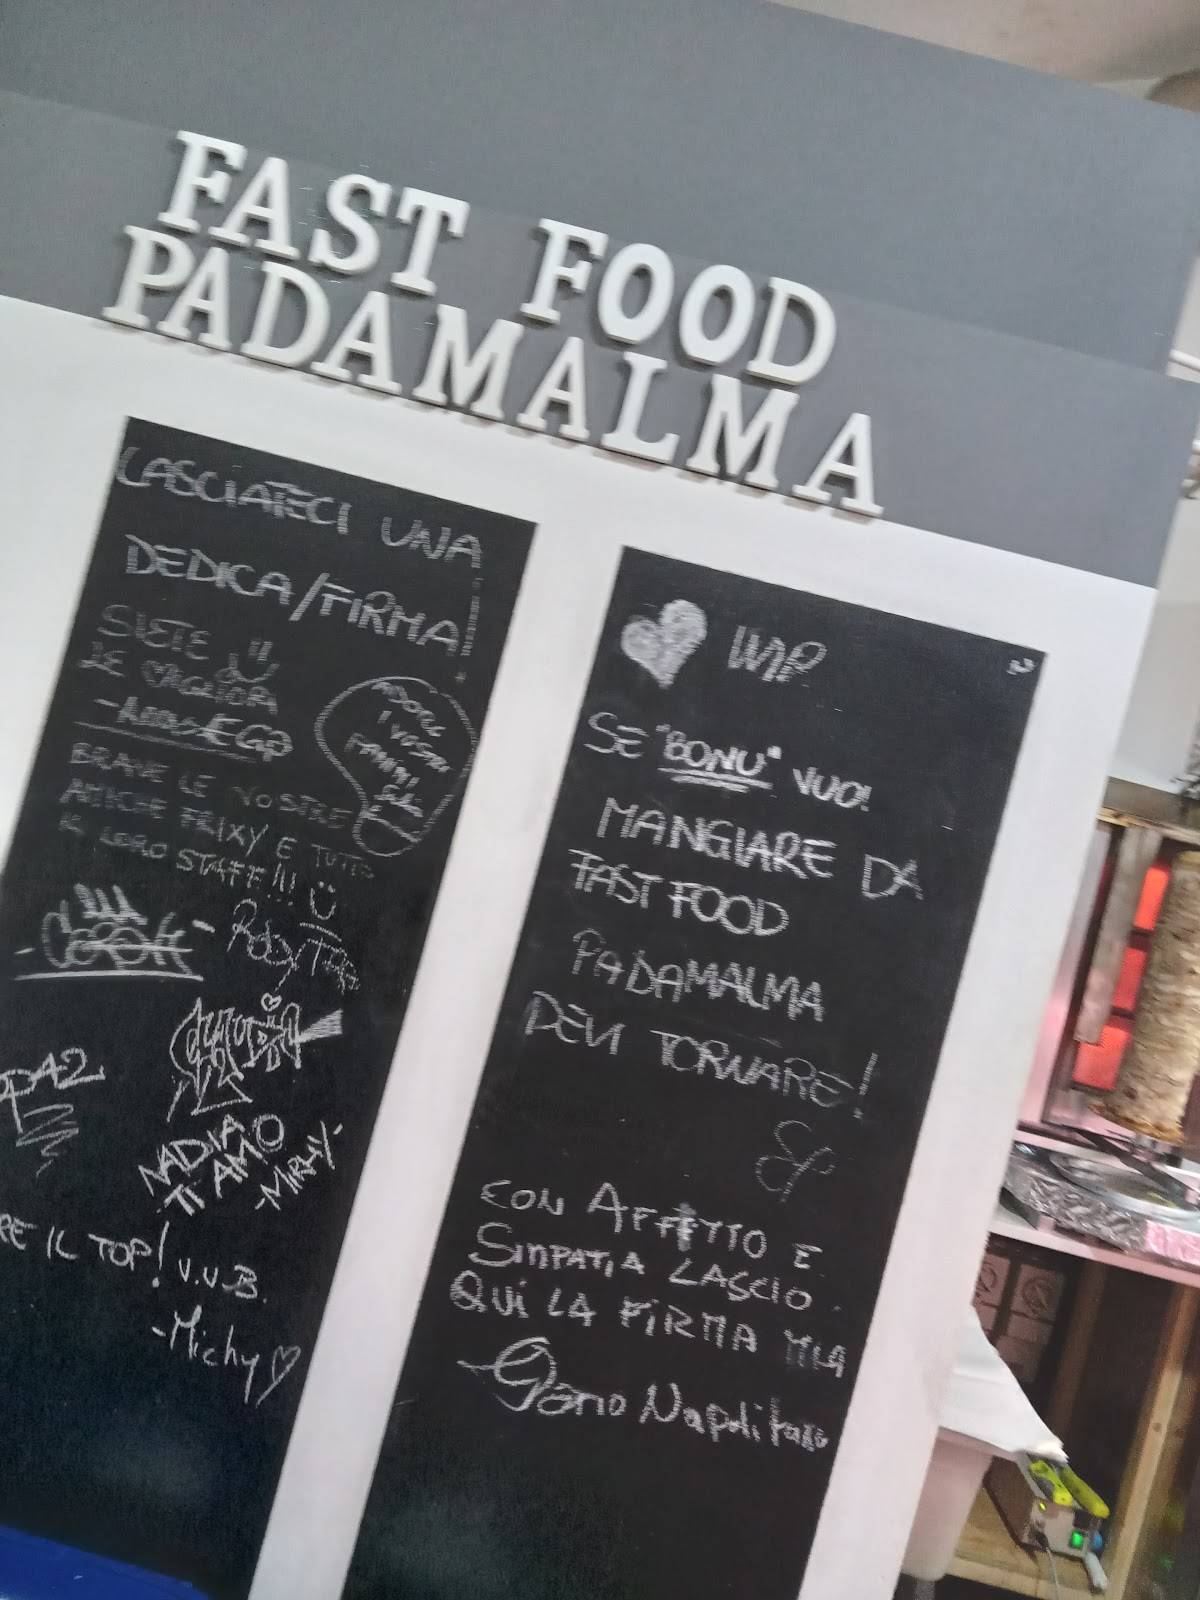 FAST FOOD
PADAMALMA
LASCIATECI UNA
DEDICA/FIRMA!
SIETE
LE MIGLIORI
ADORO
I VOSTRI
PANINI!
BRAVE LE VOSTRE
AMICHE FRIXY E TUTTO
IL LORO STAFF!!!
P42
NADIA
TI AMO
-MIRKY-
RE IL TOP! V.V.B.
-Michy
VIP
SE "BONU" VUOI
MANGIARE DA
FAST FOOD
PADAMALMA
DEVI TORNARE!
CON AFFETTO E
SIMPATIA LASCIO
QUI LA FIRMA MIA
Napolitano